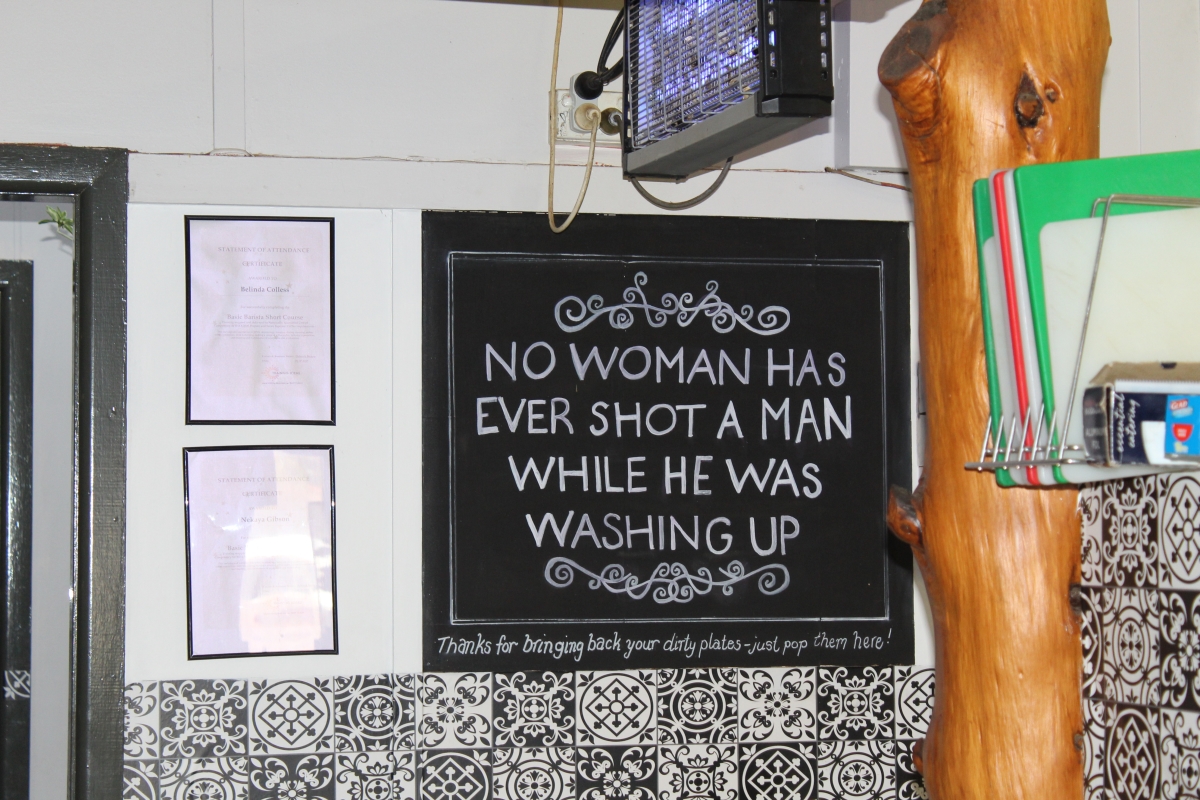 STATEMENT OF ATTENDANCE
CERTIFICATE
Belinda Colless
Basic Barista Short Course
STATEMENT OF ATTENDANCE
CERTIFICATE
Basic
NO WOMAN HAS
EVER SHOT A MAN
WHILE HE WAS
WASHING UP
Thanks for bringing back your dirty plates - just pop them here!
essential
catering
GLAD